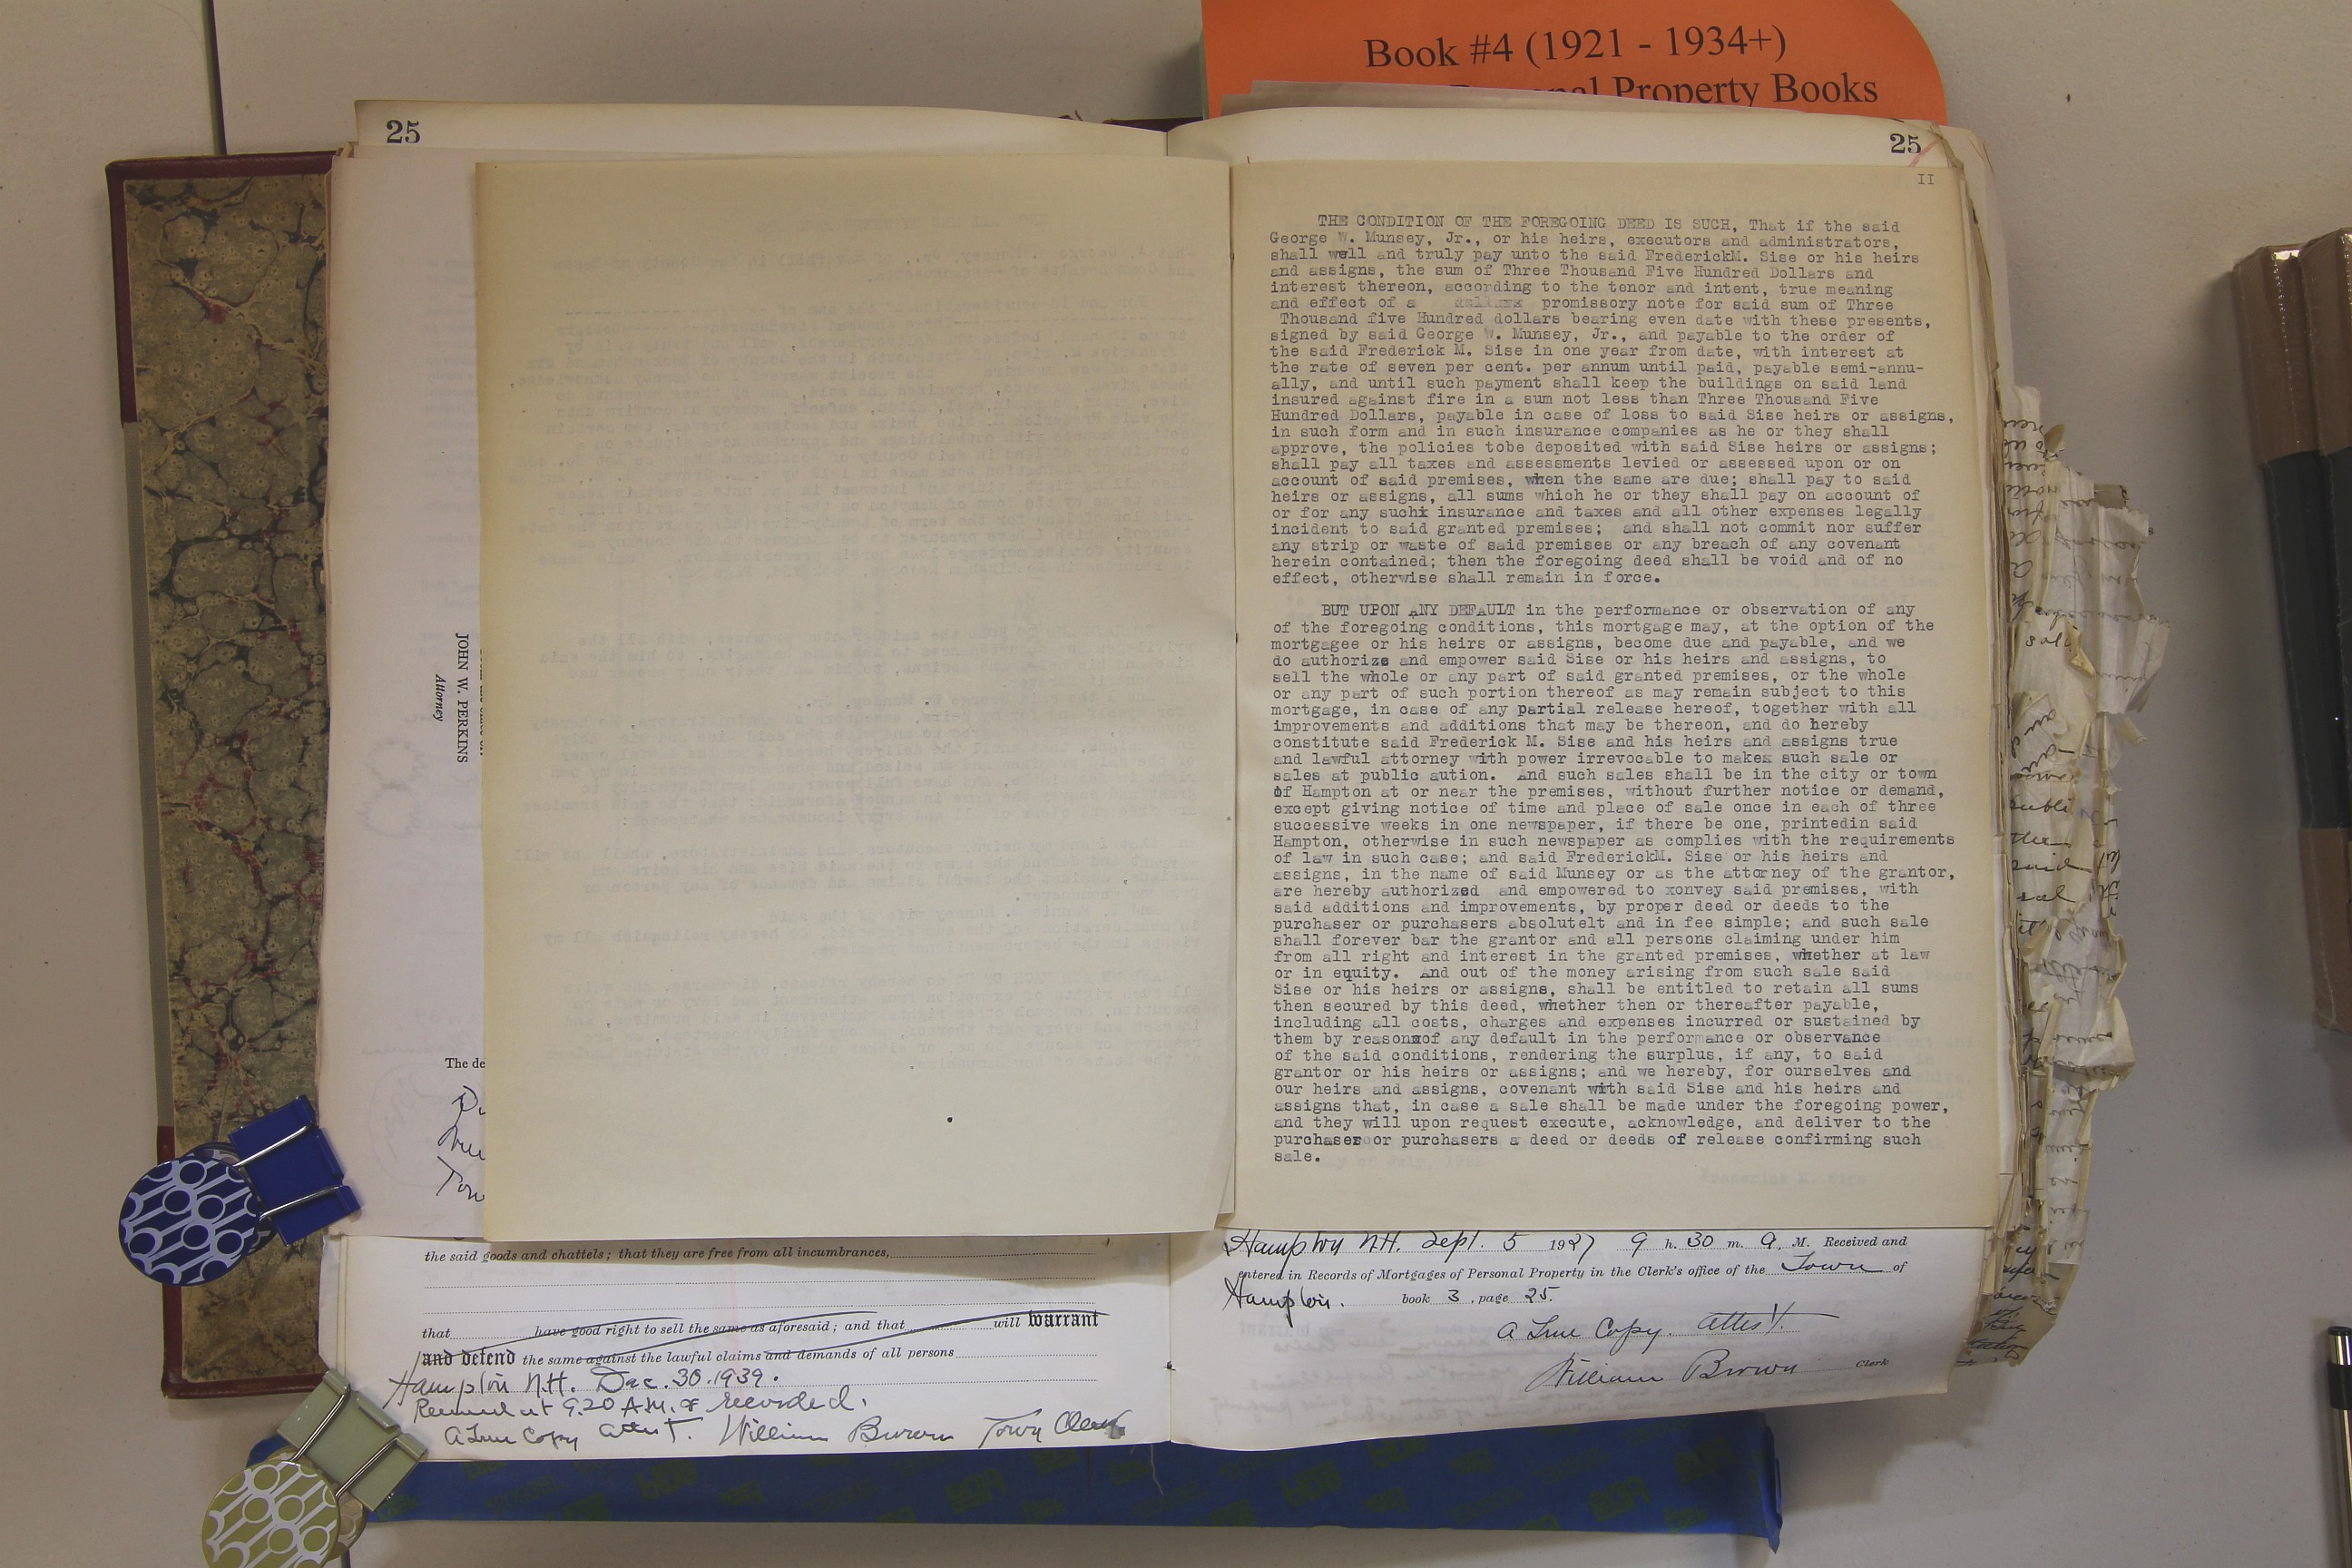 Book #4 (1921 - 1934+)
Personal Property Books
25
JOHN W. PERKINS
Attorney
The de
the said goods and chattels ; that they are free from all incumbrances,
that have good right to sell the same as aforesaid ; and that will warrant
and defend the same against the lawful claims and demands of all persons
Hampton N.H. Dec. 30. 1939.
Received at 9.20 A.M. & recorded.
A True Copy Attest. William Brown Town Clerk
25
II
THE CONDITION OF THE FOREGOING DEED IS SUCH, That if the said
George W. Munsey, Jr., or his heirs, executors and administrators,
shall well and truly pay unto the said FrederickM. Sise or his heirs
and assigns, the sum of Three Thousand Five Hundred Dollars and
interest thereon, according to the tenor and intent, true meaning
and effect of a promissory note for said sum of Three
Thousand five Hundred dollars bearing even date with these presents,
signed by said George W. Munsey, Jr., and payable to the order of
the said Frederick M. Sise in one year from date, with interest at
the rate of seven per cent. per annum until paid, payable semi-annu-
ally, and until such payment shall keep the buildings on said land
insured against fire in a sum not less than Three Thousand Five
Hundred Dollars, payable in case of loss to said Sise heirs or assigns,
in such form and in such insurance companies as he or they shall
approve, the policies tobe deposited with said Sise heirs or assigns;
shall pay all taxes and assessments levied or assessed upon or on
account of said premises, when the same are due; shall pay to said
heirs or assigns, all sums which he or they shall pay on account of
or for any suchx insurance and taxes and all other expenses legally
incident to said granted premises; and shall not commit nor suffer
any strip or waste of said premises or any breach of any covenant
herein contained; then the foregoing deed shall be void and of no
effect, otherwise shall remain in force.
BUT UPON ANY DEFAULT in the performance or observation of any
of the foregoing conditions, this mortgage may, at the option of the
mortgagee or his heirs or assigns, become due and payable, and we
do authorize and empower said Sise or his heirs and assigns, to
sell the whole or any part of said granted premises, or the whole
or any part of such portion thereof as may remain subject to this
mortgage, in case of any partial release hereof, together with all
improvements and additions that may be thereon, and do hereby
constitute said Frederick M. Sise and his heirs and assigns true
and lawful attorney with power irrevocable to makex such sale or
sales at public aution. And such sales shall be in the city or town
of Hampton at or near the premises, without further notice or demand,
except giving notice of time and place of sale once in each of three
successive weeks in one newspaper, if there be one, printedin said
Hampton, otherwise in such newspaper as complies with the requirements
of law in such case; and said FrederickM. Sise or his heirs and
assigns, in the name of said Munsey or as the attorney of the grantor,
are hereby authorized and empowered to xonvey said premises, with
said additions and improvements, by proper deed or deeds to the
purchaser or purchasers absolutelt and in fee simple; and such sale
shall forever bar the grantor and all persons claiming under him
from all right and interest in the granted premises, whether at law
or in equity. And out of the money arising from such sale said
Sise or his heirs or assigns, shall be entitled to retain all sums
then secured by this deed, whether then or thereafter payable,
including all costs, charges and expenses incurred or sustained by
them by reasonxof any default in the performance or observance
of the said conditions, rendering the surplus, if any, to said
grantor or his heirs or assigns; and we hereby, for ourselves and
our heirs and assigns, covenant with said Sise and his heirs and
assigns that, in case a sale shall be made under the foregoing power,
and they will upon request execute, acknowledge, and deliver to the
purchaser or purchasers a deed or deeds of release confirming such
sale.
Hampton N.H. Sept. 5 1927 9 h. 30 m. A. M. Received and
entered in Records of Mortgages of Personal Property in the Clerk's office of the Town of
Hampton. book 3, page 25.
A True Copy. Attest.
William Brown Clerk